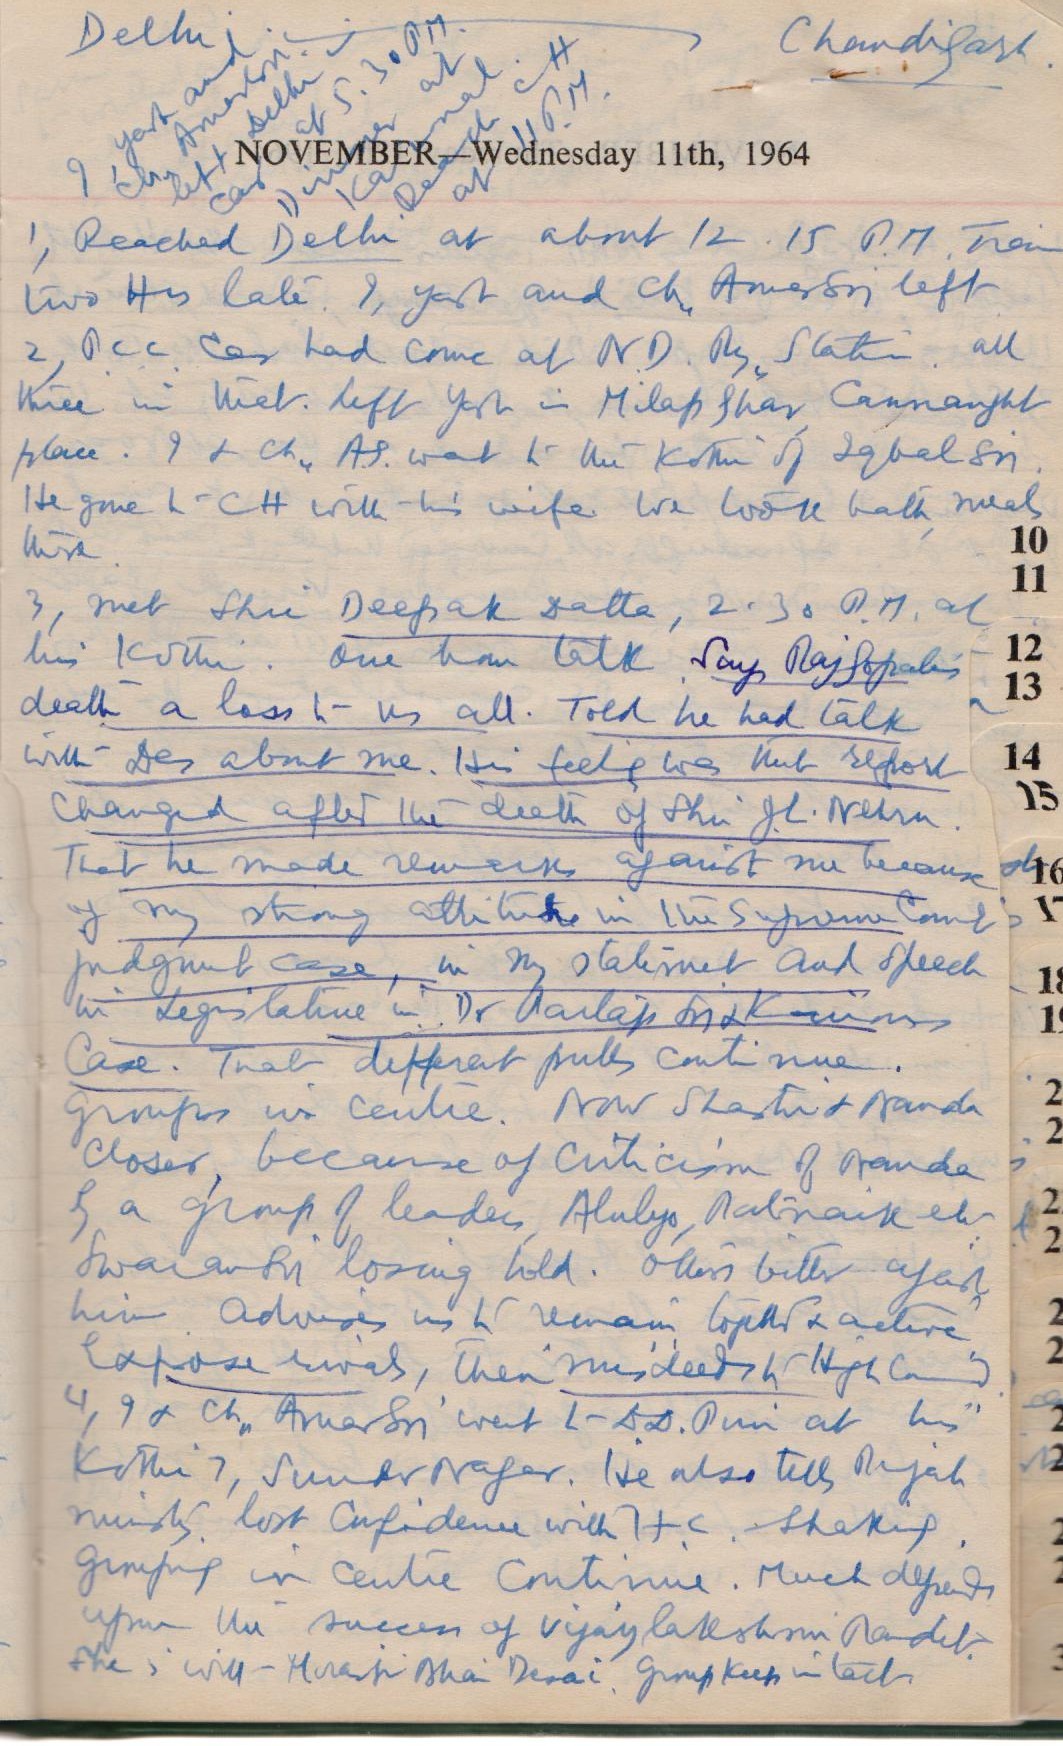 Delhi
Chandigarh.
I, yash and
Ch,, Amarsri.
left Delhi
Car at 5.30 P.M.
Dinner at
Karnal.
Reach CH
at 11 P.M.
NOVEMBER—Wednesday 11th, 1964
1, Reached Delhi at about 12.15 P.M. Train
two Hrs late. I, yash and Ch,, AmarSri left
2, P.C.C. Car had come at N.D. Ry,, Station. all
three in that. Left Yash in Milap Ghar, Cannaught
place. I & Ch,, AS. went to the Kothi of Iqbal Sri.
He gone to CH with his wife. We took bath, meals
there.
3, met Shri Deepak Datta, 2.30 P.M. at
his Kothi. One hour talk. Says RajGopal's
death a loss to us all. Told he had talk
with Das about me. His feeling was that report
changed after the death of Shri J.L. Nehru.
That he made remarks against me because
of my strong attitude in the Supreme Court's
judgment case, in my statement and speech
in Legislative in Dr Partap Sri &
Case. That different pulls continue.
groups in centre. Now Shastri & Nanda
closer, because of criticism of Nanda
by a group of leaders, Atulya, Patnaik etc
SwaranSri losing hold. Others bitter against
him. Advises us to remain together & active
Expose rivals, their misdeeds to High Command
4, I & Ch,, AmarSri went to D.D. Puri at his
Kothi 7, Sunder Nagar. He also tells Punjab
ministry lost Confidence with H.C. Shaking.
grouping in centre continue. Much depends
upon the success of Vijaylakshmi Pandit.
She is with Morarji Bhai Desai. Group keep intact.
10
11
12
13
14
15
16
17
18
19